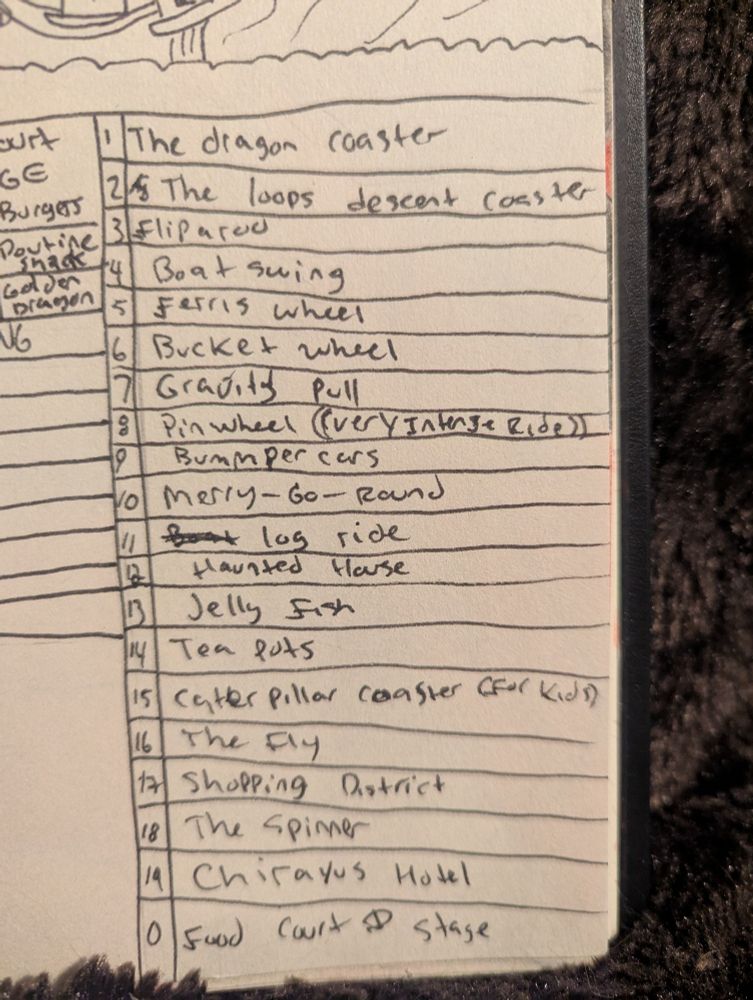 ourt
GE
Burgers
Poutine
shack
Golden
Dragon
NG
1 The dragon coaster
2 The loops descent coaster
3 Fliparoo
4 Boat swing
5 Ferris wheel
6 Bucket wheel
7 Gravity Pull
8 Pinwheel ((very Intense Ride))
9 Bummper cars
10 Merry-Go-Round
11 log ride
12 Haunted House
13 Jelly Fish
14 Tea Pots
15 Catterpillar coaster (For Kids)
16 The Fly
17 Shopping District
18 The Spinner
19 Chirayus Hotel
0 Food Court & Stage